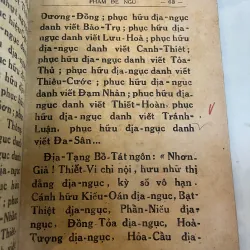 PHẨM ĐỆ NGŨ — 69 —
Dương-Đồng ; phục hữu địa-ngục
danh viết Bảo-Trụ ; phục hữu địa-ngục
danh viết Lưu-Hoả ; phục hữu địa-ngục
danh viết Canh-Thiệt ;
phục hữu địa-ngục danh viết Tỏa-
Thủ ; phục hữu địa-ngục danh viết
Thiêu-Cước ; phục hữu địa-ngục
danh viết Đạm-Nhãn ; phục hữu
địa-ngục danh viết Thiết-Hoàn,
phục hữu địa-ngục danh viết Tránh-
Luận, phục hữu địa-ngục danh
viết Đa-Sân...
Địa-Tạng Bồ-Tát ngôn : « Nhơn-
Giả ! Thiết-Vi chi nội, hưu nhứ thị
đẳng địa-ngục, kỳ số vô hạn.
Cánh hữu Kiếu-Oán địa-ngục, Bạt-
Thiệt địa-ngục, Phẩn-Niếu địa-
ngục, Đồng-Tỏa địa-ngục, Hoả-
Tượng địa-ngục, Hỏa-Cẩu địa-